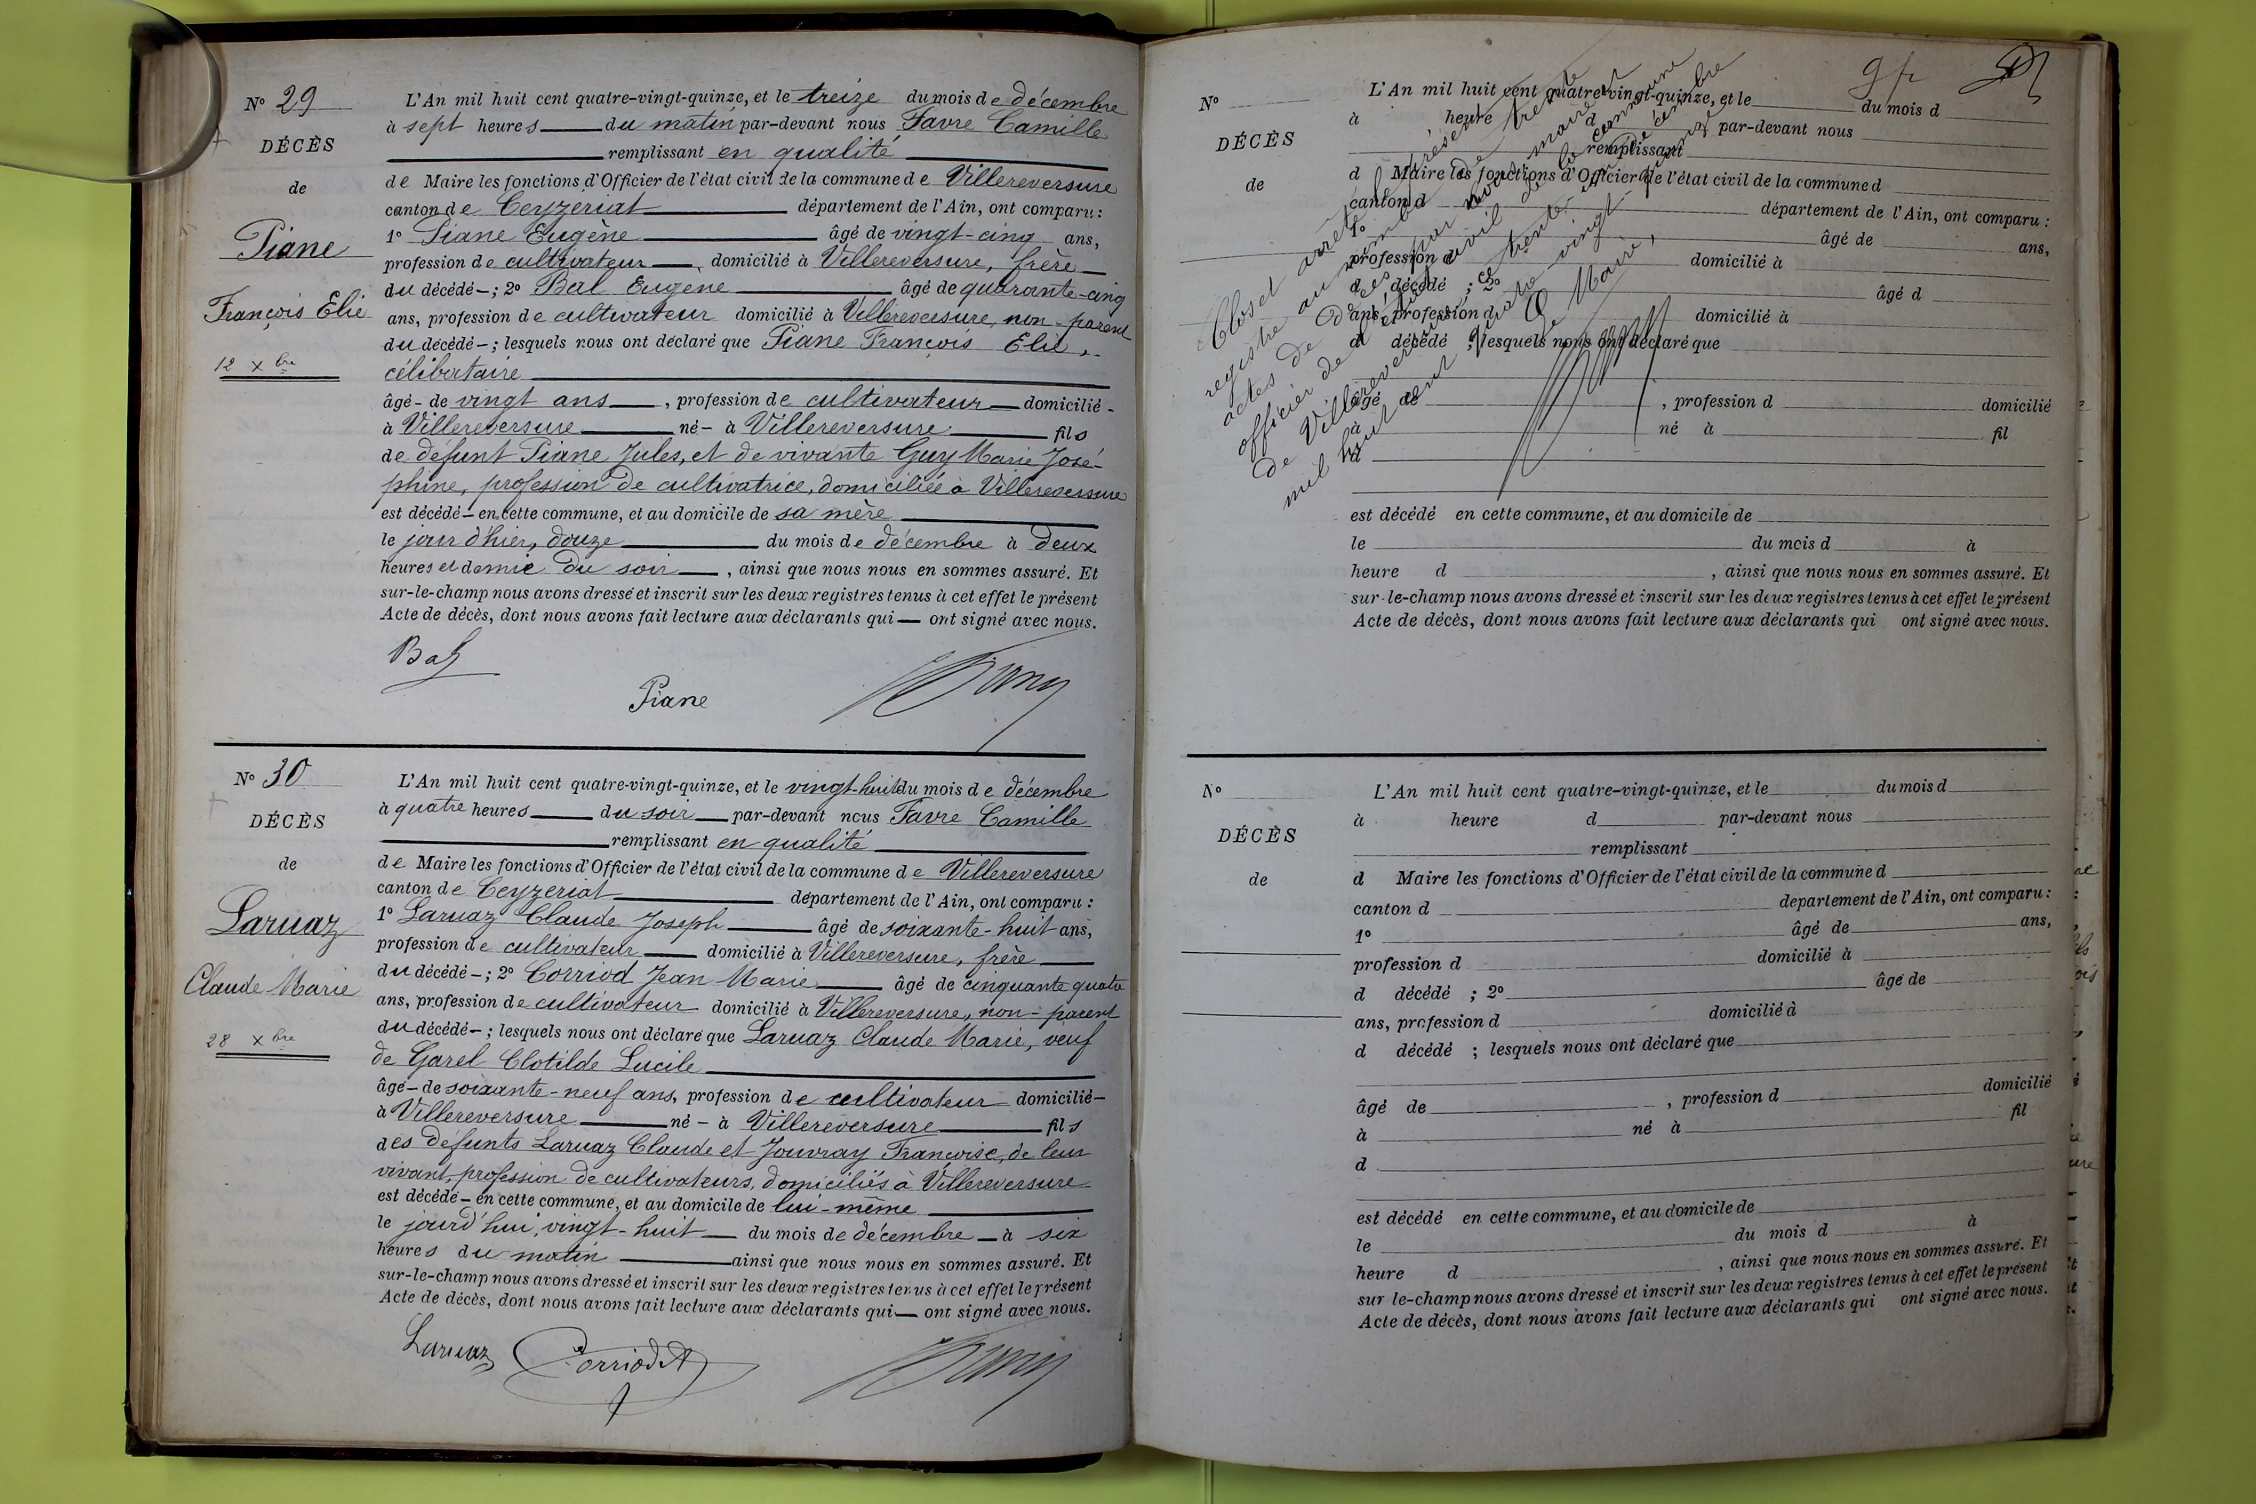 N° 29
DÉCÈS
de
Piane
François Elie
12 Xbre
L'An mil huit cent quatre-vingt-quinze, et le treize du mois de décembre
à sept heures du matin par-devant nous Favre Camille
remplissant en qualité
de Maire les fonctions d'Officier de l'état civil de la commune de Villereversure
canton de Ceyzériat département de l'Ain, ont comparu :
1° Piane Eugène âgé de vingt-cinq ans,
profession de cultivateur, domicilié à Villereversure, frère
du décédé ; 2° Bal Eugène âgé de quarante-cinq
ans, profession de cultivateur domicilié à Villereversure, non-parent
du décédé ; lesquels nous ont déclaré que Piane François Elie,
célibataire
âgé de vingt ans, profession de cultivateur domicilié
à Villereversure né à Villereversure fils
de défunt Piane Jules, et de vivante Guy Marie José-
phine, profession de cultivatrice, domiciliée à Villereversure
est décédé en cette commune, et au domicile de sa mère
le jour d'hier, douze du mois de décembre à deux
heures et demie du soir, ainsi que nous nous en sommes assuré. Et
sur-le-champ nous avons dressé et inscrit sur les deux registres tenus à cet effet le présent
Acte de décès, dont nous avons fait lecture aux déclarants qui ont signé avec nous.
Bal
Piane
N° 30
DÉCÈS
de
Laruaz
Claude Marie
28 Xbre
L'An mil huit cent quatre-vingt-quinze, et le vingt-huit du mois de décembre
à quatre heures du soir par-devant nous Favre Camille
remplissant en qualité
de Maire les fonctions d'Officier de l'état civil de la commune de Villereversure
canton de Ceyzeriat département de l'Ain, ont comparu :
1° Laruaz Claude Joseph âgé de soixante-huit ans,
profession de cultivateur domicilié à Villereversure, frère
du décédé ; 2° Corriod Jean Marie âgé de cinquante quatre
ans, profession de cultivateur domicilié à Villereversure, non-parent
du décédé ; lesquels nous ont déclaré que Laruaz Claude Marie, veuf
de Garel Clotilde Lucile
âgé de soixante-neuf ans, profession de cultivateur domicilié
à Villereversure né à Villereversure fils
des défunts Laruaz Claude et Jouvray Françoise, de leur
vivant, profession de cultivateurs, domiciliés à Villereversure
est décédé en cette commune, et au domicile de lui-même
le jourd'hui, vingt-huit du mois de décembre à six
heures du matin ainsi que nous nous en sommes assuré. Et
sur-le-champ nous avons dressé et inscrit sur les deux registres tenus à cet effet le présent
Acte de décès, dont nous avons fait lecture aux déclarants qui ont signé avec nous.
Laruaz
Corriod
N°
DÉCÈS
de
L'An mil huit cent quatre-vingt-quinze, et le du mois d
à heure d par-devant nous
remplissant
d Maire les fonctions d'Officier de l'état civil de la commune d
canton d département de l'Ain, ont comparu :
1° âgé de ans,
profession d domicilié à
d décédé ; 2° âgé d
ans, profession d domicilié à
d décédé ; lesquels nous ont déclaré que
âgé de , profession d domicilié
à né à fil
d
est décédé en cette commune, et au domicile de
le du mois d à
heure d , ainsi que nous nous en sommes assuré. Et
sur-le-champ nous avons dressé et inscrit sur les deux registres tenus à cet effet le présent
Acte de décès, dont nous avons fait lecture aux déclarants qui ont signé avec nous.
Clos et arrêté le présent
registre au nombre de trente
actes de décès par nous maire et
officier de l'état civil de la commune
de Villereversure, ce trente-un décembre
mil huit cent quatre-vingt-quinze
Le Maire,
N°
DÉCÈS
de
L'An mil huit cent quatre-vingt-quinze, et le du mois d
à heure d par-devant nous
remplissant
d Maire les fonctions d'Officier de l'état civil de la commune d
canton d département de l'Ain, ont comparu :
1° âgé de ans,
profession d domicilié à
d décédé ; 2° âgé de
ans, profession d domicilié à
d décédé ; lesquels nous ont déclaré que
âgé de , profession d domicilié
à né à fil
d
est décédé en cette commune, et au domicile de
le du mois d à
heure d , ainsi que nous nous en sommes assuré. Et
sur le-champ nous avons dressé et inscrit sur les deux registres tenus à cet effet le présent
Acte de décès, dont nous avons fait lecture aux déclarants qui ont signé avec nous.